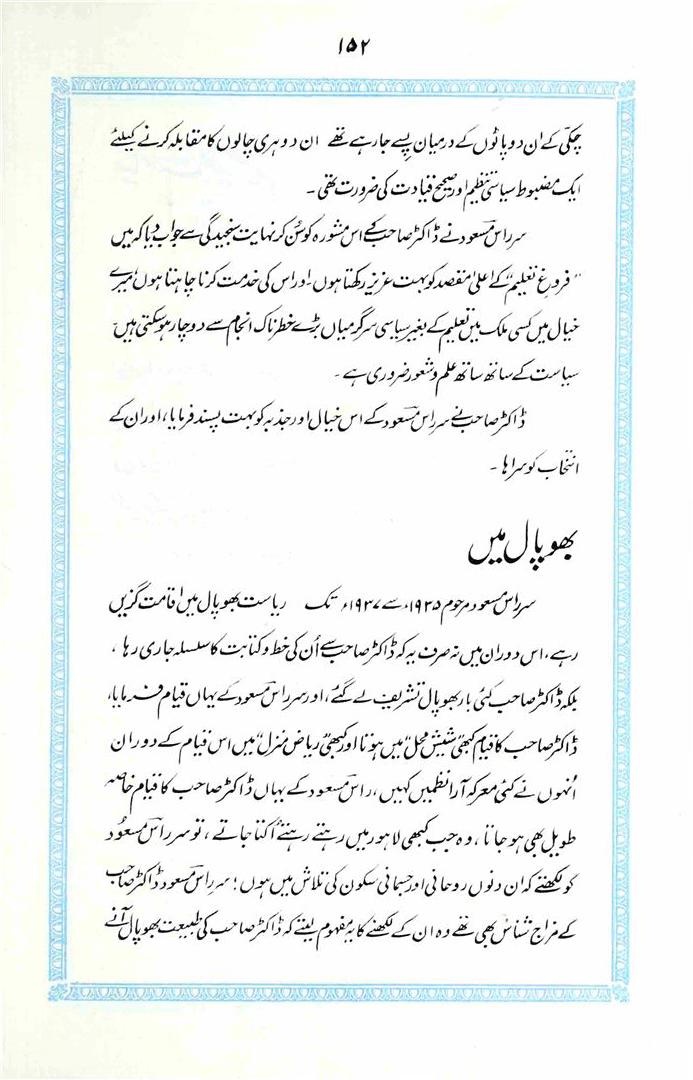 ۱۵۲
چکی کے ان دو پاٹوں کے درمیان پسے جا رہے تھے ان دوہری چالوں کا مقابلہ کرنے کیلئے
ایک مضبوط سیاسی تنظیم اور صحیح قیادت کی ضرورت تھی۔
سر راس مسعود نے ڈاکٹر صاحب کے اس مشورہ کو سُن کر نہایت سنجیدگی سے جواب دیا کہ میں
"فروغِ تعلیم" کے اعلیٰ مقصد کو بہت عزیز رکھتا ہوں۔ اور اس کی خدمت کرنا چاہتا ہوں، میرے
خیال میں کسی ملک میں تعلیم کے بغیر سیاسی سرگرمیاں بڑے خطرناک انجام سے دو چار ہو سکتی ہیں
سیاست کے ساتھ ساتھ علم و شعور ضروری ہے۔
ڈاکٹر صاحب نے سر راس مسعود کے اس خیال اور جذبہ کو بہت پسند فرمایا، اور ان کے
انتخاب کو سراہا۔
بھوپال میں
سر راس مسعود مرحوم ۱۹۳۵ء سے ۱۹۳۷ء تک ریاست بھوپال میں اقامت گزیں
رہے، اس دوران میں نہ صرف یہ کہ ڈاکٹر صاحب سے اُن کی خط و کتابت کا سلسلہ جاری رہا،
بلکہ ڈاکٹر صاحب کئی بار بھوپال تشریف لے گئے، اور سر راس مسعود کے یہاں قیام فرمایا،
ڈاکٹر صاحب کا قیام کبھی "شیش محل" میں ہوتا اور کبھی "ریاض منزل" میں اس قیام کے دوران
اُنہوں نے کئی معرکہ آرا نظمیں کہیں، راس مسعود کے یہاں ڈاکٹر صاحب کا قیام خاصہ
طویل بھی ہو جاتا، وہ جب کبھی لاہور میں رہتے رہتے اُکتا جاتے، تو سر راس مسعُود
کو لکھتے کہ ان دنوں روحانی اور جسمانی سکون کی تلاش میں ہوں! سر راس مسعود ڈاکٹر صاحب
کے مزاج شناس بھی تھے وہ ان کے لکھنے کا یہ مفہوم لیتے کہ ڈاکٹر صاحب کی طبیعت بھوپال آنے